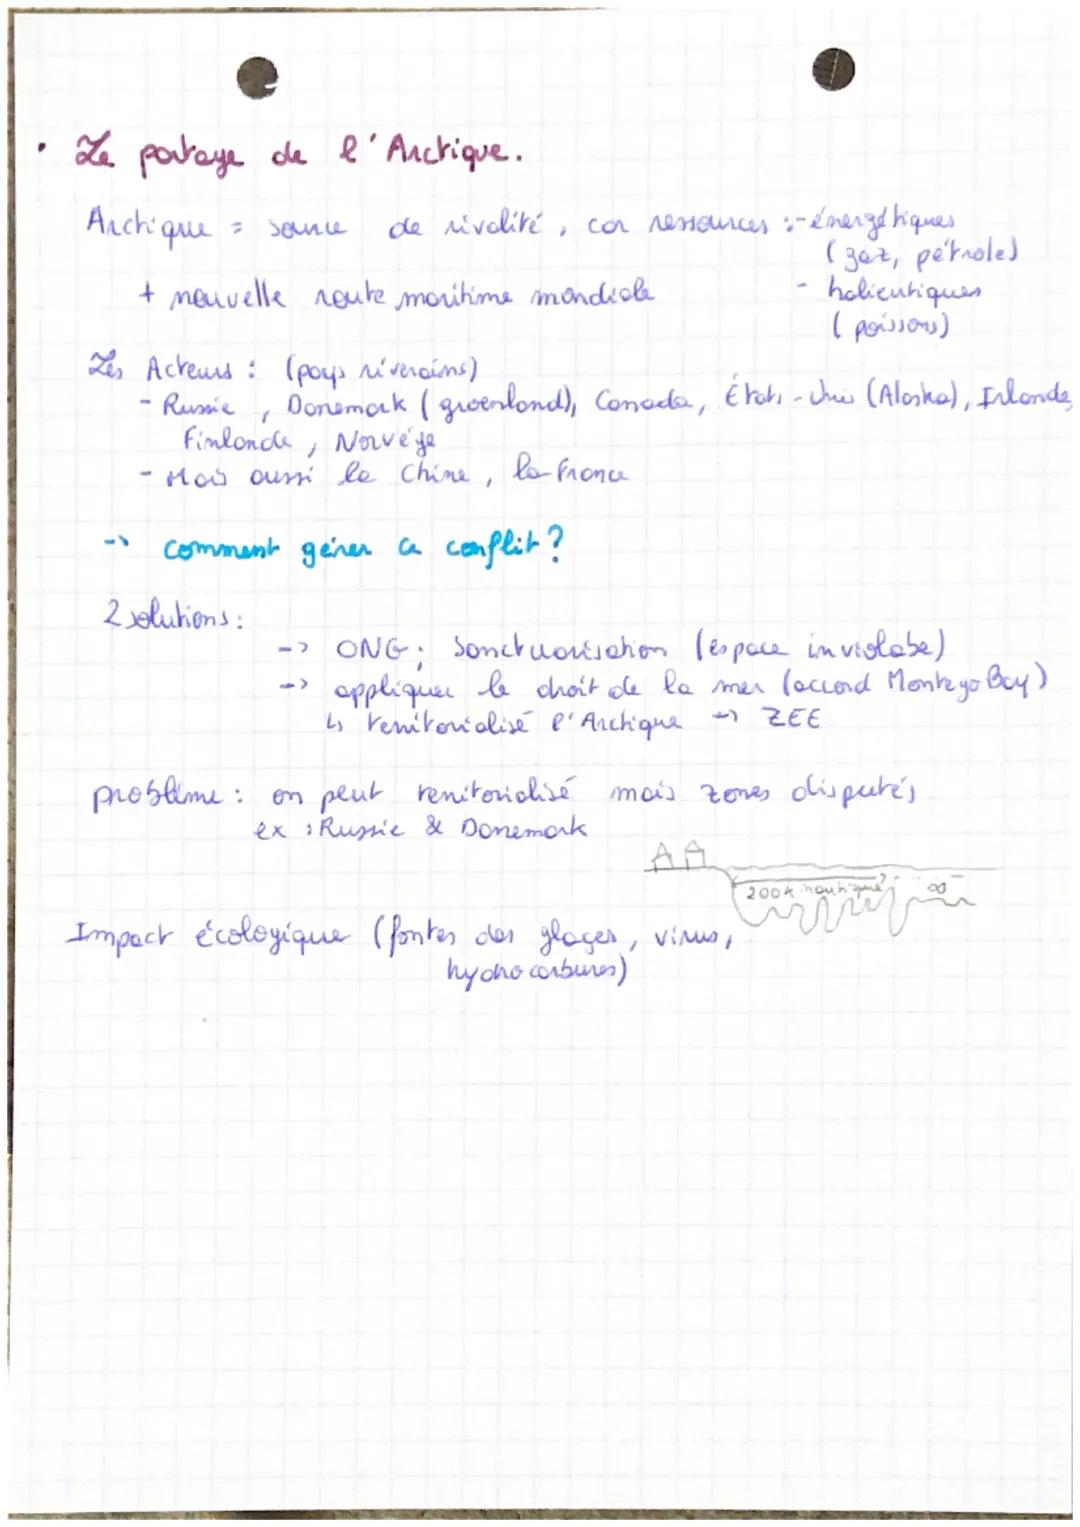 • Le partage de l'Arctique.
Arctique = source de rivalité, car ressources :- énergétiques
(gaz, pétrole)
+ nouvelle route maritime mondiale
- halieutiques
(poissons)
Les Acteurs : (pays riverains)
- Russie, Danemark (groenland), Canada, États-Unis (Alaska), Irlande,
Finlande, Norvège
- Mais aussi la Chine, la France
-> comment gérer ce conflit ?
2 solutions :
-> ONG : Sanctuarisation (espace inviolabe)
-> appliquer le droit de la mer (accord Montego Bay)
↳ territorialisé l'Arctique -> ZEE
problème : on peut territorialisé mais zones disputés
ex : Russie & Danemark
200 nautique ?
∞
Impact écologique (fontes des glaces, virus,
hydrocarbures)